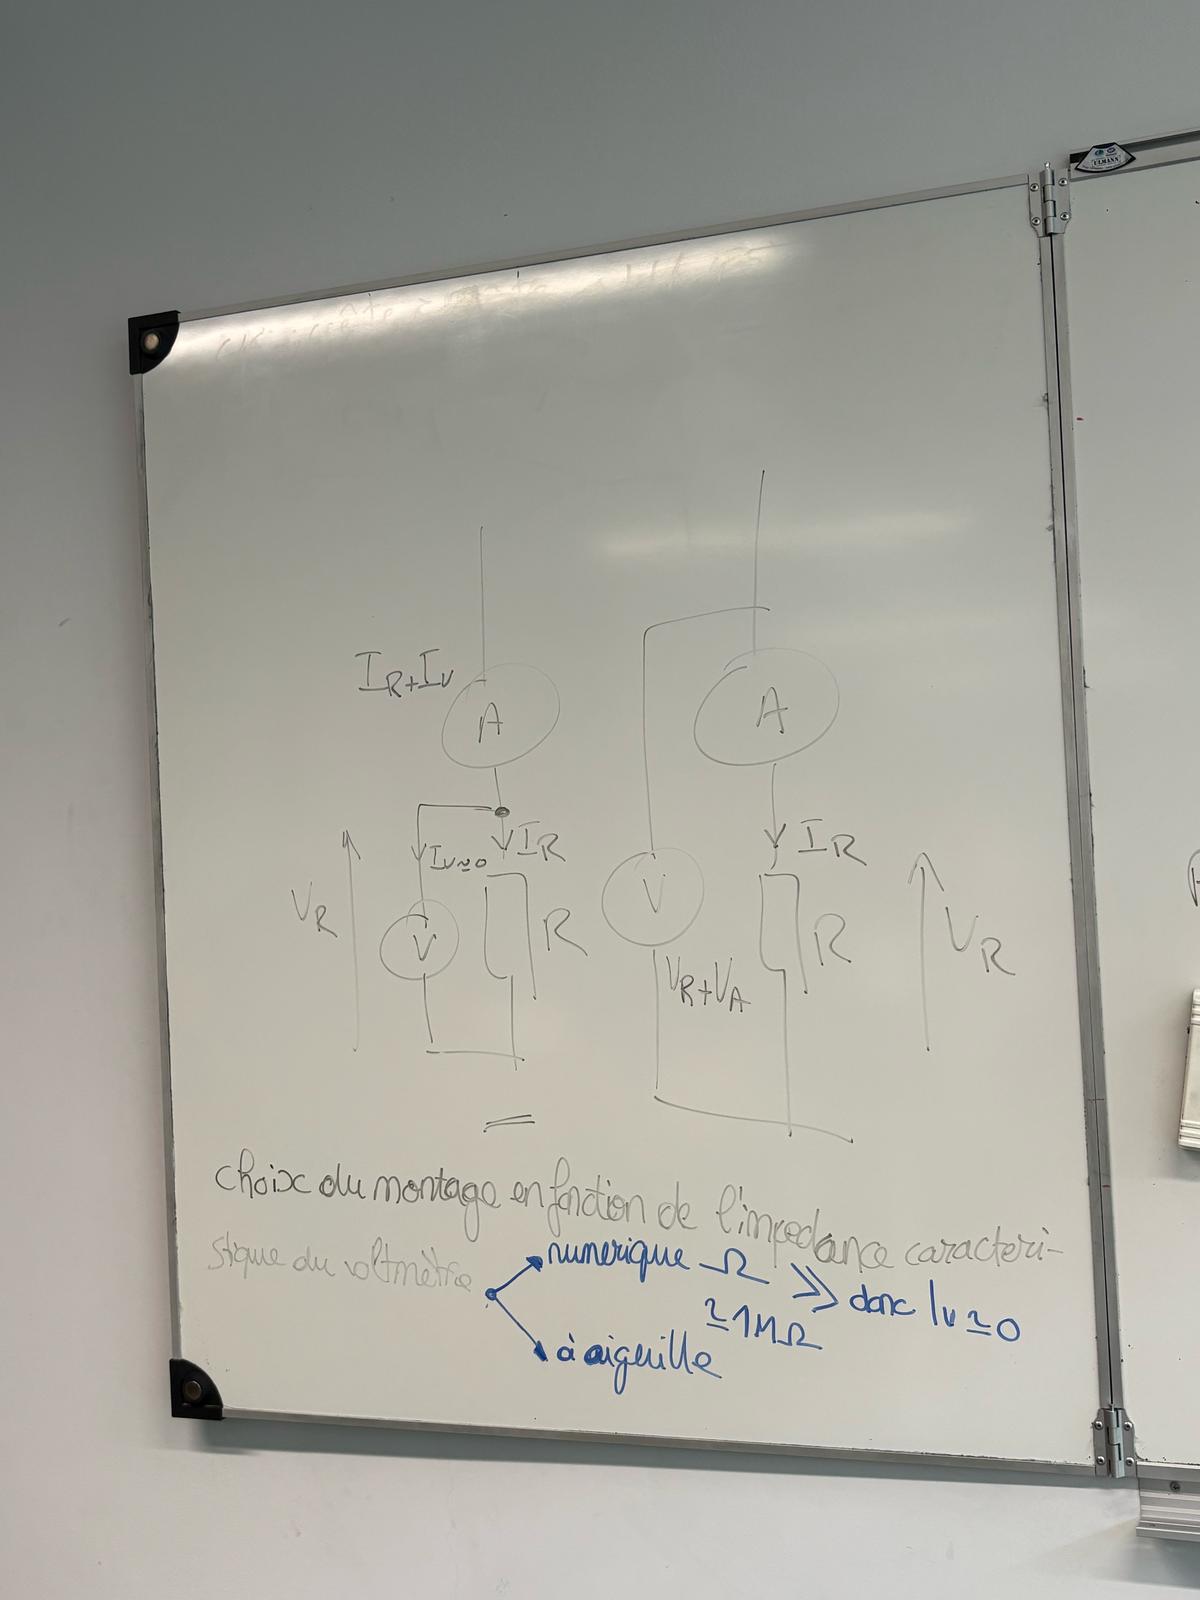 ULMANN
I_R+I_V
A
A
I_V≃0
I_R
I_R
V_R
V
R
V
R
V_R
V_R+V_A
choix du montage en fonction de l'impedance caracteri-
stique du voltmètre
numerique Ω >> donc I_V≃0
≃1MΩ
à aiguille